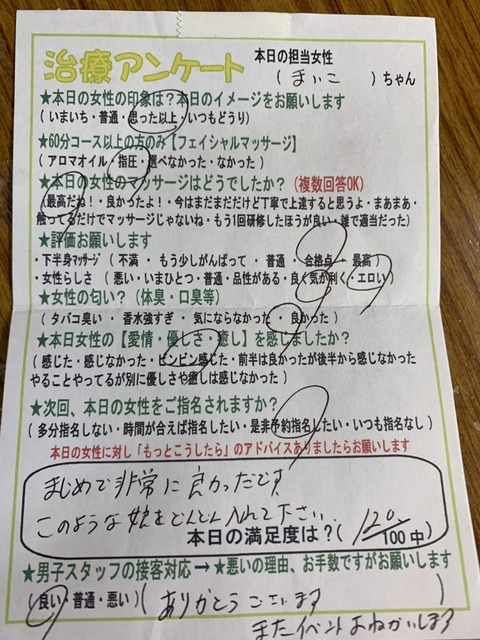 治療アンケート
本日の担当女性
( まいこ )ちゃん
★本日の女性の印象は?本日のイメージをお願いします
( いまいち・普通・思った以上・いつもどうり )
★60分コース以上の方のみ【フェイシャルマッサージ】
( アロマオイル・指圧・選べなかった・なかった )
★本日の女性のマッサージはどうでしたか? (複数回答OK)
(最高だね!・良かったよ!・今はまだまだけど丁寧で上達すると思うよ・まあまあ・
触ってるだけでマッサージじゃないね・もう1回研修したほうが良い・雑で適当だった)
★評価お願いします
・下半身マッサージ ( 不満 ・ もう少しがんばって ・ 普通 ・ 合格点 ・ 最高 )
・女性らしさ ( 悪い・いまひとつ・普通・品性がある・良く気が利く・エロい )
★女性の匂い? (体臭・口臭等)
( タバコ臭い ・ 香水強すぎ ・ 気にならなかった ・ 良かった )
★本日女性の【愛情・優しさ・癒し】を感じましたか?
( 感じた・感じなかった・ビンビン感じた・前半は良かったが後半から感じなかった
やることやってるが別に優しさや癒しは感じなかった )
★次回、本日の女性をご指名されますか?
( 多分指名しない・時間が合えば指名したい・是非予約指名したい・いつも指名なし )
本日の女性に対し「もっとこうしたら」のアドバイスありましたらお願いします
まじめで非常に良かったです
このような娘をどんどん入れて下さい
本日の満足度は?( 120/100中 )
★男子スタッフの接客対応 → ★悪いの理由、お手数ですがお願いします
( 良い・普通・悪い ) ( ありがとうございます )
またイベントおねがいします